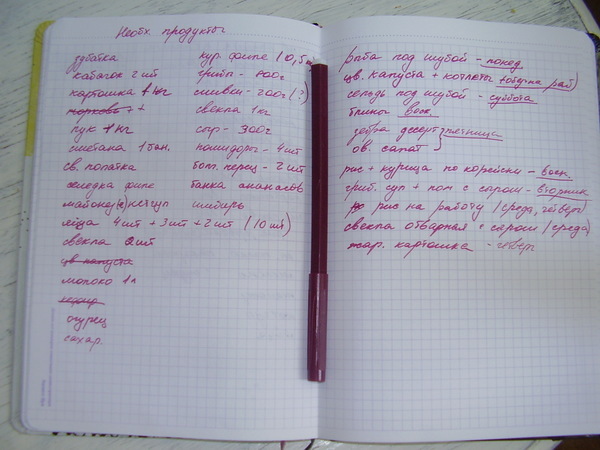 Необх. продукты
зубатка
кабачок 2 шт
картошка 1 кг
морковь + +
лук 1 кг
сметана 1 бан.
св. лопатка
селедка филе
майонез, кетчуп
яйца 4 шт + 3 шт + 2 шт (10 шт)
свекла 2 шт
цв капуста
молоко 1 л
огурец
сахар.
кур. филе (0,5
грибы - 400г
сливки - 200г (?)
свекла 1 кг
сыр - 300г
помидоры - 4 шт
болг. перец - 2 шт
банка ананасов
имбирь
рыба под шубой - понед.
цв. капуста + котлеты
сельдь под шубой - суббота
блины воск.
зебра десерт
пятница
ов. салат
рис + курица по корейски - воск.
гриб. суп + пом с сыром - вторник
рис на работу (среда, четверг)
свекла отварная с сыром (среда)
жар. картошка - четверг